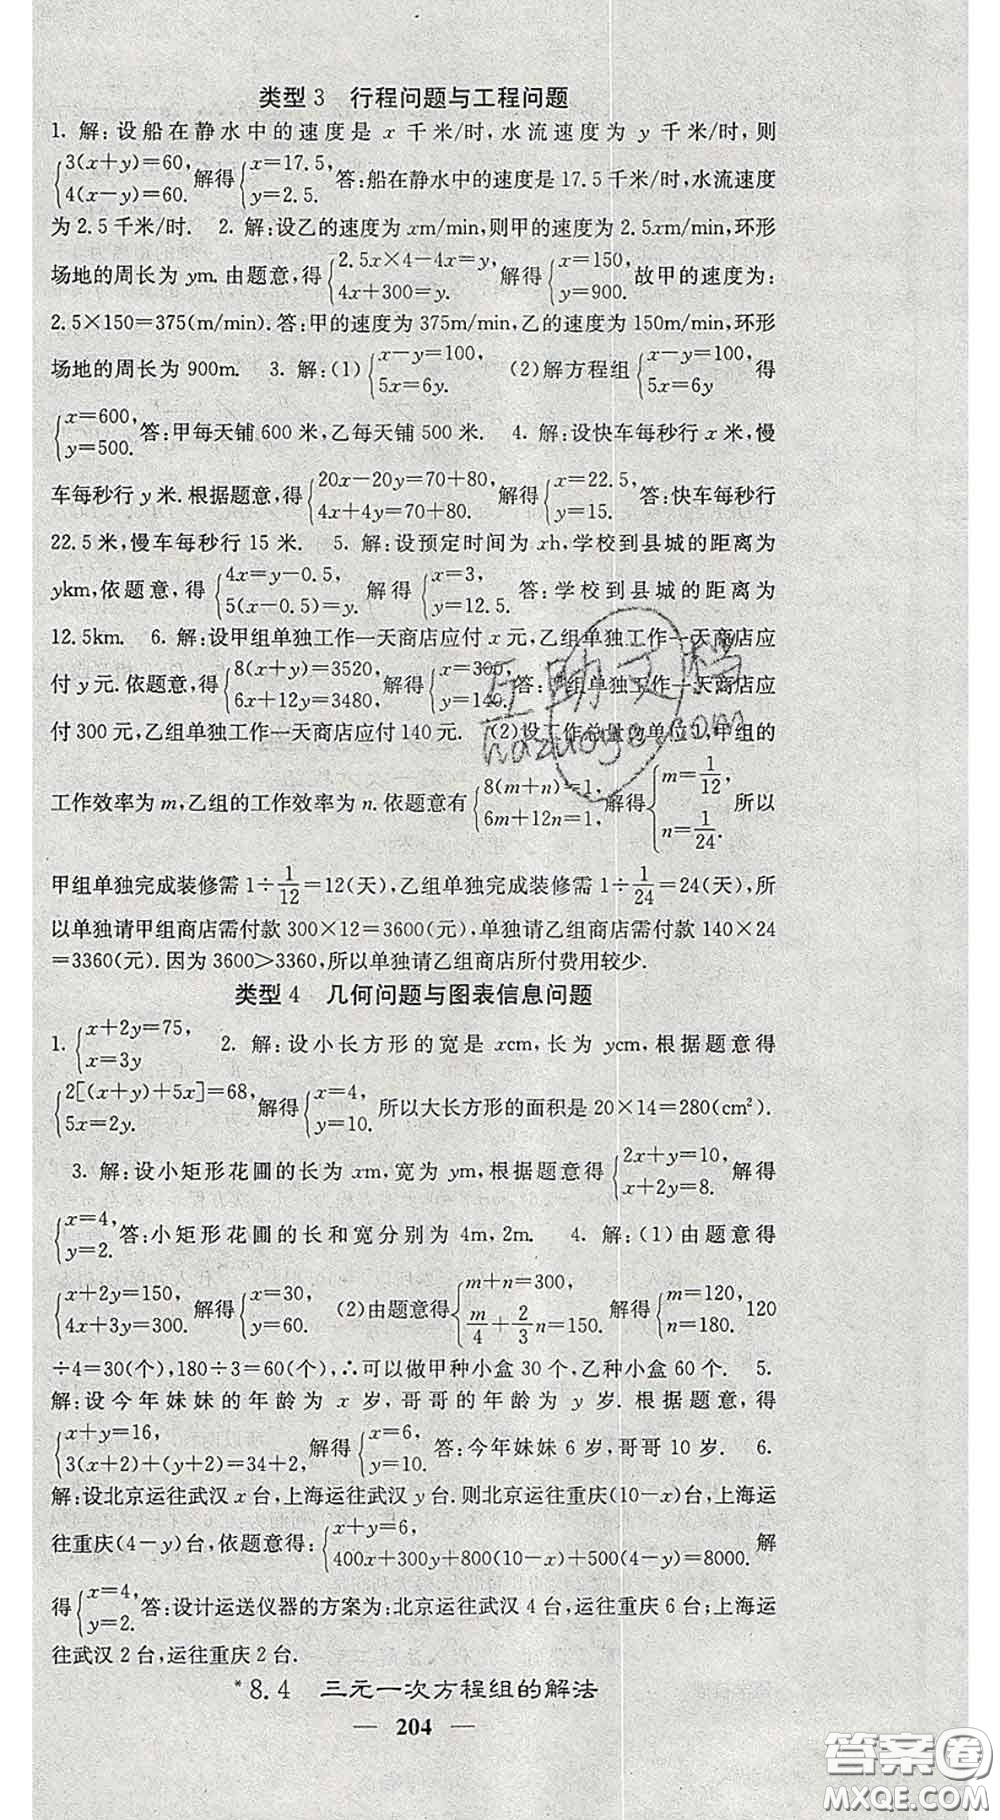 类型 3　行程问题与工程问题
1. 解:设船在静水中的速度是 x 千米/时,水流速度为 y 千米/时,则
{3(x+y)=60, 4(x-y)=60. 解得{x=17.5, y=2.5. 答:船在静水中的速度是 17.5 千米/时,水流速度
为 2.5 千米/时.　2. 解:设乙的速度为 xm/min,则甲的速度为 2.5xm/min,环形
场地的周长为 ym. 由题意,得{2.5x×4-4x=y, 4x+300=y. 解得{x=150, y=900. 故甲的速度为:
2.5×150=375(m/min). 答:甲的速度为 375m/min,乙的速度为 150m/min,环形
场地的周长为 900m.　3. 解:(1){x-y=100, 5x=6y.　(2)解方程组{x-y=100, 5x=6y 得
{x=600, y=500. 答:甲每天铺 600 米,乙每天铺 500 米.　4. 解:设快车每秒行 x 米,慢
车每秒行 y 米. 根据题意,得{20x-20y=70+80, 4x+4y=70+80. 解得{x=22.5, y=15. 答:快车每秒行
22.5 米,慢车每秒行 15 米.　5. 解:设预定时间为 xh,学校到县城的距离为
ykm,依题意,得{4x=y-0.5, 5(x-0.5)=y. 解得{x=3, y=12.5. 答:学校到县城的距离为
12.5km.　6. 解:设甲组单独工作一天商店应付 x 元,乙组单独工作一天商店应
付 y 元. 依题意,得{8(x+y)=3520, 6x+12y=3480, 解得{x=300, y=140. 答:甲组单独工作一天商店应
付 300 元,乙组单独工作一天商店应付 140 元.　(2)设工作总量为单位 1,甲组的
工作效率为 m,乙组的工作效率为 n. 依题意有{8(m+n)=1, 6m+12n=1, 解得{m=1/12, n=1/24. 所以
甲组单独完成装修需 1÷1/12=12(天),乙组单独完成装修需 1÷1/24=24(天),所
以单独请甲组商店需付款 300×12=3600(元),单独请乙组商店需付款 140×24
=3360(元). 因为 3600>3360,所以单独请乙组商店所付费用较少.
类型 4　几何问题与图表信息问题
1. {x+2y=75, x=3y　2. 解:设小长方形的宽是 xcm,长为 ycm,根据题意得
{2[(x+y)+5x]=68, 5x=2y. 解得{x=4, y=10. 所以大长方形的面积是 20×14=280(cm²).
3. 解:设小矩形花圃的长为 xm,宽为 ym,根据题意得{2x+y=10, x+2y=8. 解得
{x=4, y=2. 答:小矩形花圃的长和宽分别为 4m,2m.　4. 解:(1)由题意得
{x+2y=150, 4x+3y=300. 解得{x=30, y=60.　(2)由题意得{m+n=300, m/4+2/3n=150. 解得{m=120, n=180. 120
÷4=30(个),180÷3=60(个),∴可以做甲种小盒 30 个,乙种小盒 60 个.　5.
解:设今年妹妹的年龄为 x 岁,哥哥的年龄为 y 岁. 根据题意,得
{x+y=16, 3(x+2)+(y+2)=34+2, 解得{x=6, y=10. 答:今年妹妹 6 岁,哥哥 10 岁.　6.
解:设北京运往武汉 x 台,上海运往武汉 y 台. 则北京运往重庆(10-x)台,上海运
往重庆(4-y)台,依题意得:{x+y=6, 400x+300y+800(10-x)+500(4-y)=8000. 解
得{x=4, y=2. 答:设计运送仪器的方案为:北京运往武汉 4 台,运往重庆 6 台;上海运
往武汉 2 台,运往重庆 2 台.
*8.4　三元一次方程组的解法
— 204 —
互助文档
hazuoye.com
答案圈
MXQE.COM